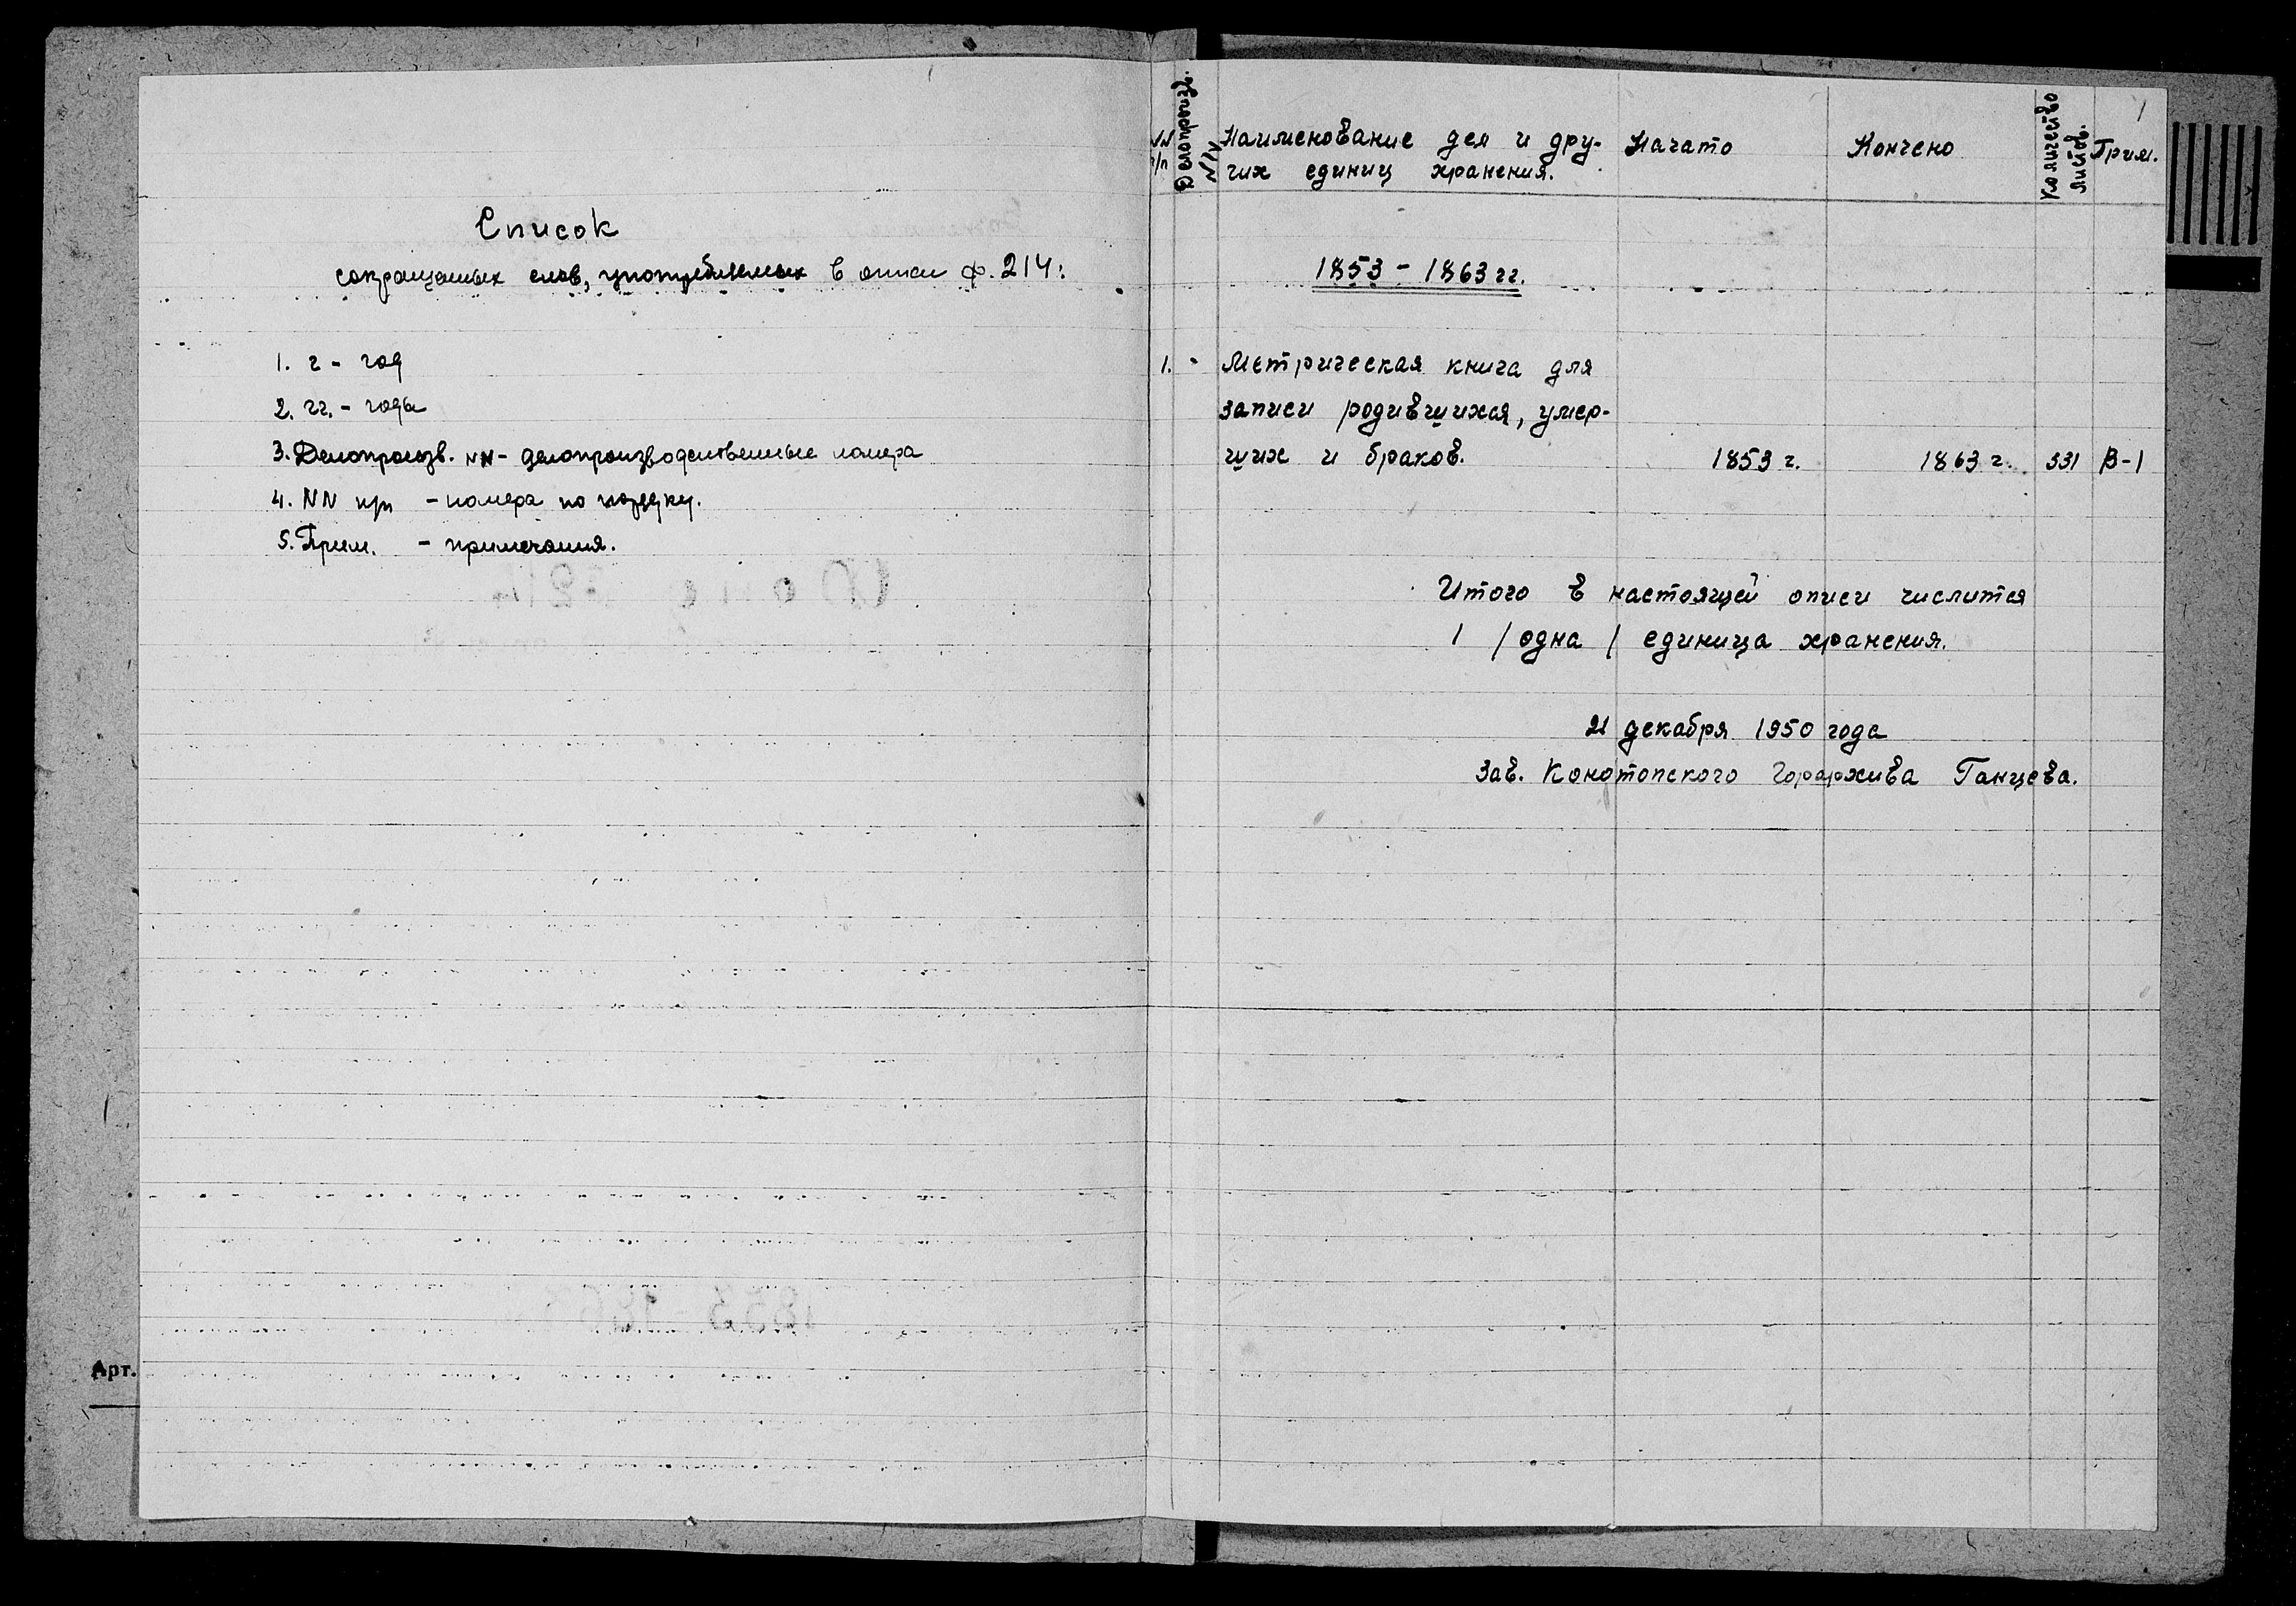 Список
сокращенных слов, употребляемых в описи ф. 214:
1. г - год
2. гг. - годы
3. Делопроизв. NN - делопроизводственные номера
4. NN п/п - номера по порядку.
5. Прим. - примечания.
Арт.
1
NN п/п
Делопроизв. NN
Наименование дел и дру-
гих единиц хранения.
Начато
Кончено
Количество листов.
Прим.
1853 - 1863 гг.
1. - Метрическая книга для
записи родившихся, умер-
ших и браков. 1853 г. 1863 г. 331 В-1
Итого в настоящей описи числится
1 /одна/ единица хранения.
21 декабря 1950 года
Зав. Конотопского Горархива Ганцева.